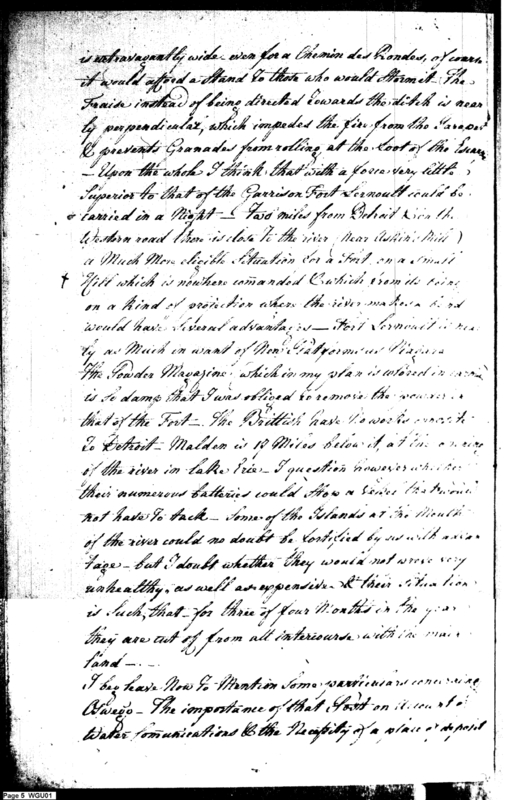 is extravagantly wide even for a Chemin des Rondes, of course
it would afford a Stand To those who would Storm it. The
Fraise instead of being directed Towards the ditch is near
ly perpendicular, which impedes the fire from the Parapet
& prevents Granades from rolling at the foot of the
– Upon the whole I think that with a force very little
Superior to that of the Garrison Fort Lernoult could be
carried in a Night – Two miles from Detroit & on the
Western road there is close To the river (Near Askin's Mill)
a Much More eligible Situation for a Fort, on a Small
Hill which is nowhere commanded & which from its being
on a Kind of projection where the river makes a bend
would have Several advantages – Fort Lernoult is near
ly as Much in want of New Platforms as Niagara
The Powder Magazine which in my plan is
is so damp that I was obliged to remove the powder
that of the Fort – The Brittish have No works opposite
To Detroit – Malden is 18 Miles below it, at the
of the river in Lake Erie – I question however whether
their numerous batteries could Stop a Vessel that would
not have To tack – Some of the Islands at the Mouth
of the river could no doubt be fortified by us with advan
tage – but I doubt whether they would not prove very
unhealthy, as well as expensive & their Situation
is Such, that for three of four Months in the year
they are cut of from all intercourse with the main
land –
I beg leave Now To Mention Some particulars concerning
Oswego – The importance of that Post on Account of
Water Communications & the Necessity of a place of deposit
Page 5 WGU01